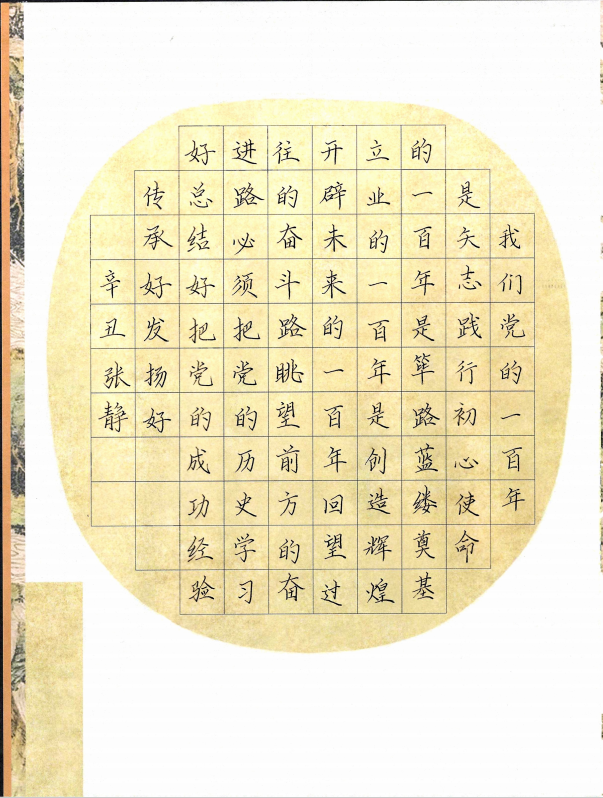 我们党的一百年
是矢志践行初心使命
的一百年是筚路蓝缕奠基
立业的一百年是创造辉煌
开辟未来的一百年回望过
往的奋斗路眺望前方的奋
进路必须把党的历史学习
好总结好把党的成功经验
传承好发扬好
辛丑张静